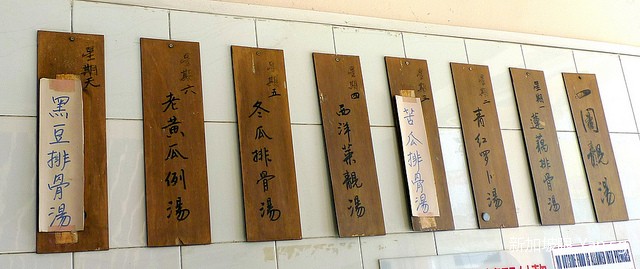 一周靚湯
星期一
蓮藕排骨湯
星期二
青红罗卜湯
星期三
苦瓜排骨湯
星期四
西洋菜靚湯
星期五
冬瓜排骨湯
星期六
老黃瓜例湯
星期天
黑豆排骨湯
NO OUTSIDE FOOD IS ALLOWED INTO PREMISES